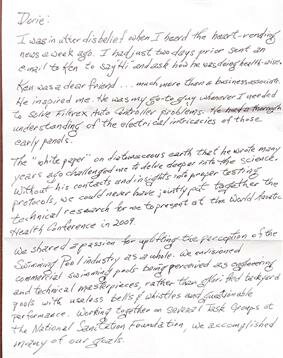 Dorie:
I was in utter disbelief when I heard the heart-rending
news a week ago. I had just two days prior sent an
email to Ken to say Hi and ask how he was doing health-wise.
Ken was a dear friend... much more than a business associate.
He inspired me. He was my go-to guy whenever I needed
to solve Filtrex Auto Controller problems. He had a thorough
understanding of the electrical intricacies of those
early panels.
The "white paper" on diatomaceous earth that he wrote many
years ago challenged me to delve deeper into the science.
Without his contacts and insights into proper testing
protocols, we could never have jointly put together the
technical research for me to present at the World Aquatic
Health Conference in 2009.
We shared a passion for uplifting the perception of the
Swimming Pool industry as a whole. We envisioned
commercial swimming pools being perceived as engineering
and technical masterpieces, rather than glorified backyard
pools with useless bells & whistles and questionable
performance. Working together on several Task Groups at
the National Sanitation Foundation, we accomplished
many of our goals.